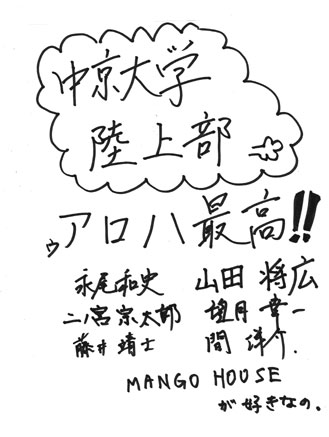 中京大学
陸上部
アロハ最高!!
永尾和史 山田将広
二ノ宮宗太郎 望月幸一
藤井靖士 間洋介.
MANGO HOUSE
が好きなの。